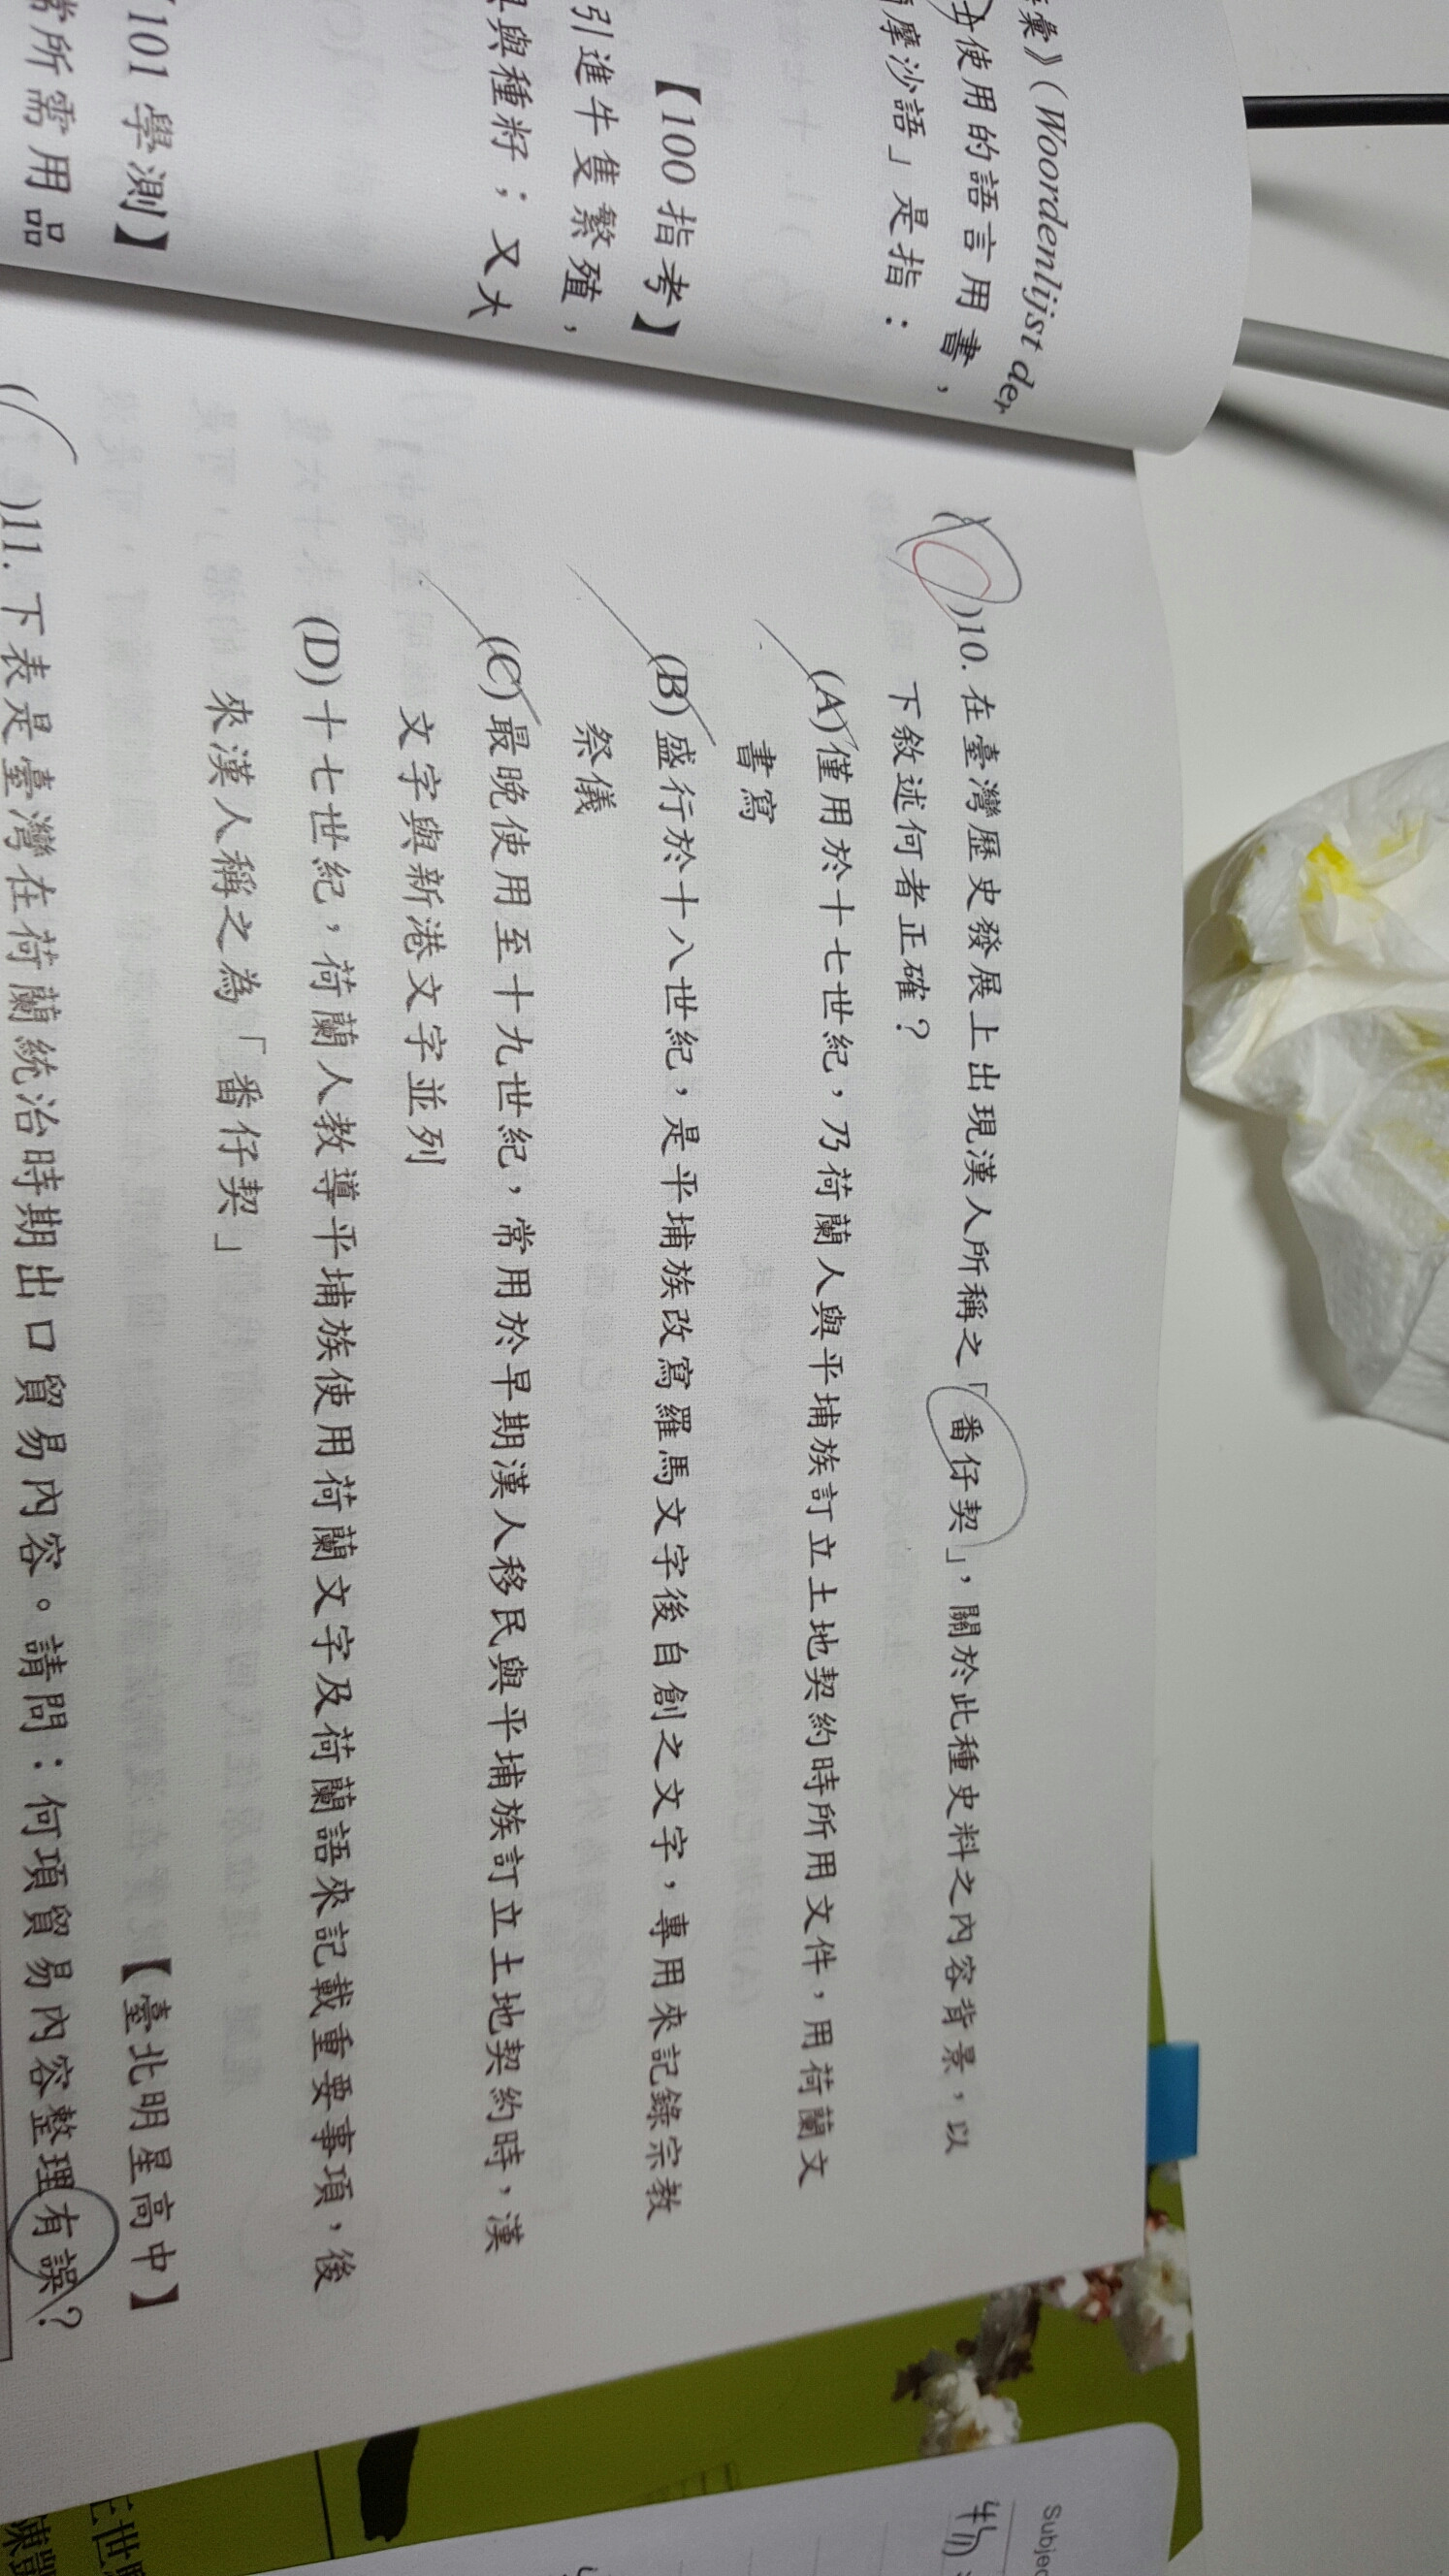 彙》(Woordenlijst der
使用的語言用書，
摩沙語」是指：
【100 指考】
引進牛隻繁殖，
與種籽；又大
101 學測】
常所需用品
( )10. 在臺灣歷史發展上出現漢人所稱之「番仔契」，關於此種史料之內容背景，以
下敘述何者正確？
(A)僅用於十七世紀，乃荷蘭人與平埔族訂立土地契約時所用文件，用荷蘭文
書寫
(B)盛行於十八世紀，是平埔族改寫羅馬文字後自創之文字，專用來記錄宗教
祭儀
(C)最晚使用至十九世紀，常用於早期漢人移民與平埔族訂立土地契約時，漢
文字與新港文字並列
(D)十七世紀，荷蘭人教導平埔族使用荷蘭文字及荷蘭語來記載重要事項，後
來漢人稱之為「番仔契」
【臺北明星高中】
( )11. 下表是臺灣在荷蘭統治時期出口貿易內容。請問：何項貿易內容整理有誤？
Subjec